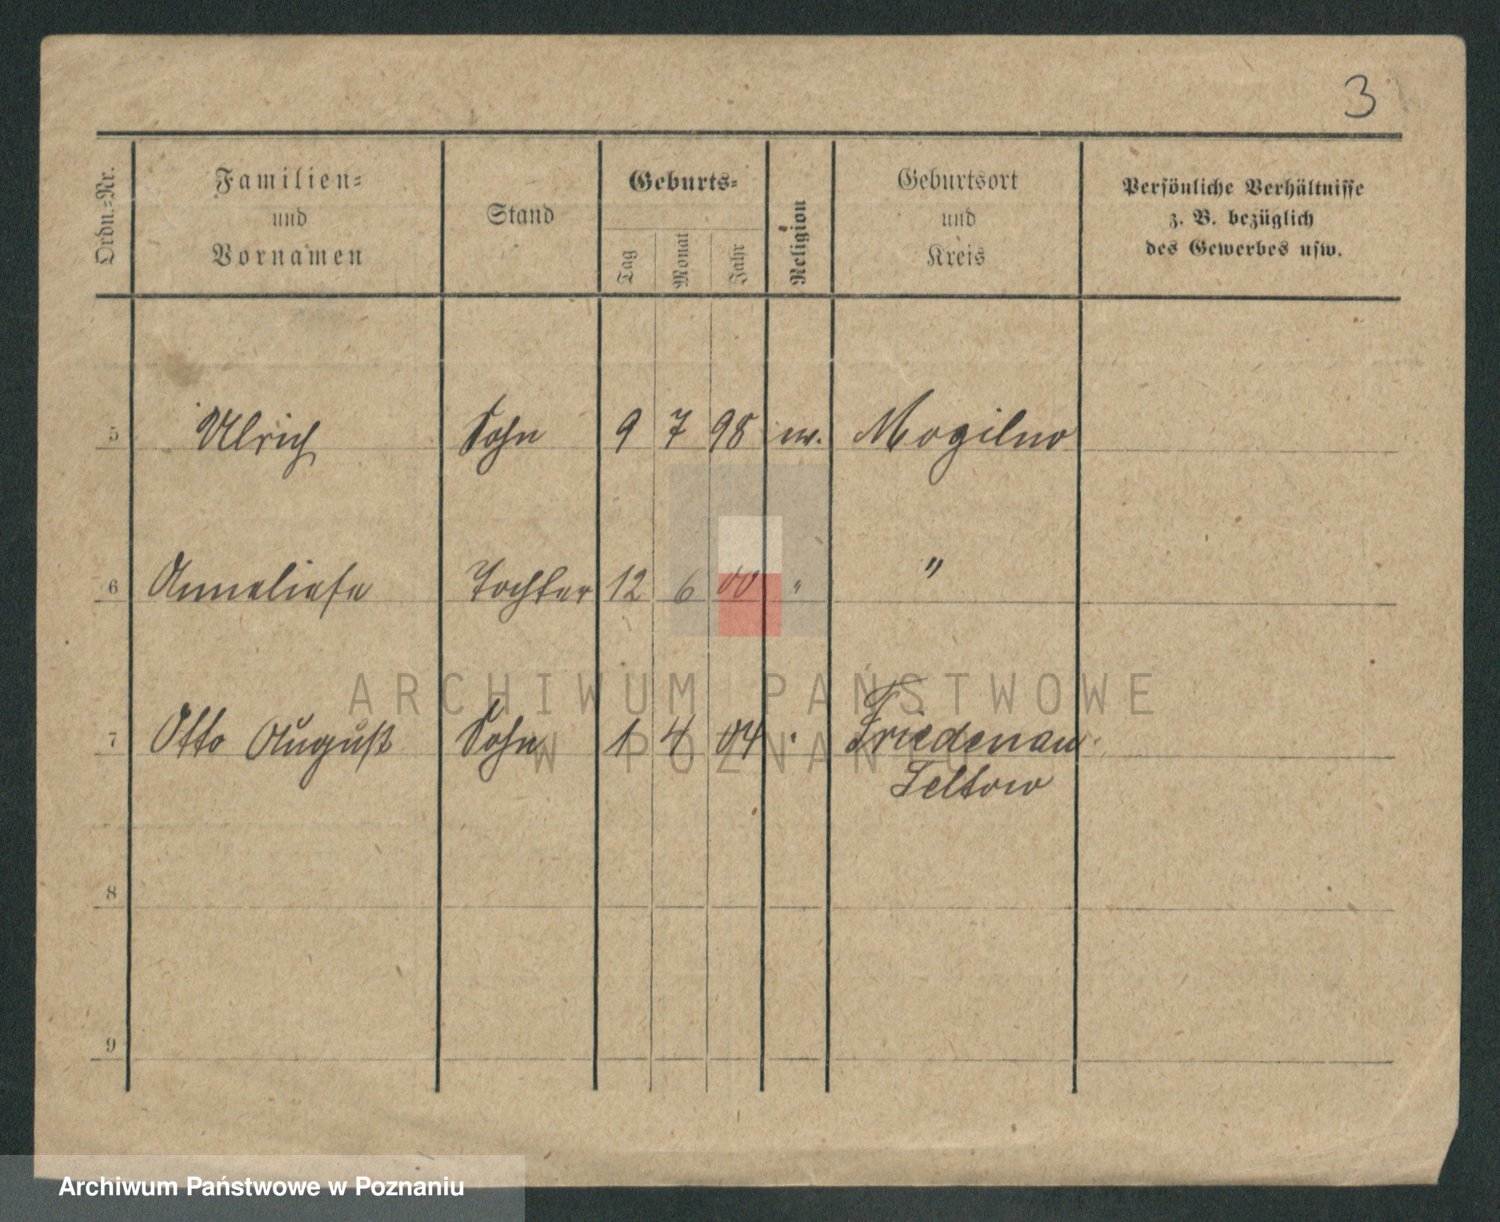 3
Ordn.-Nr.
Familien-
und
Vornamen
Stand
Geburts-
Tag
Monat
Jahr
Religion
Geburtsort
und
Kreis
Persönliche Verhältnisse
z. B. bezüglich
des Gewerbes usw.
5 Ulrich Sohn 9 7 98 Mogilno
6 Anneliese Tochter 12 6 00 " "
ARCHIWUM PAŃSTWOWE
7 Otto August Sohn 1 4 04 " Friedenau
W POZNANIU
Teltow
8
9
Archiwum Państwowe w Poznaniu